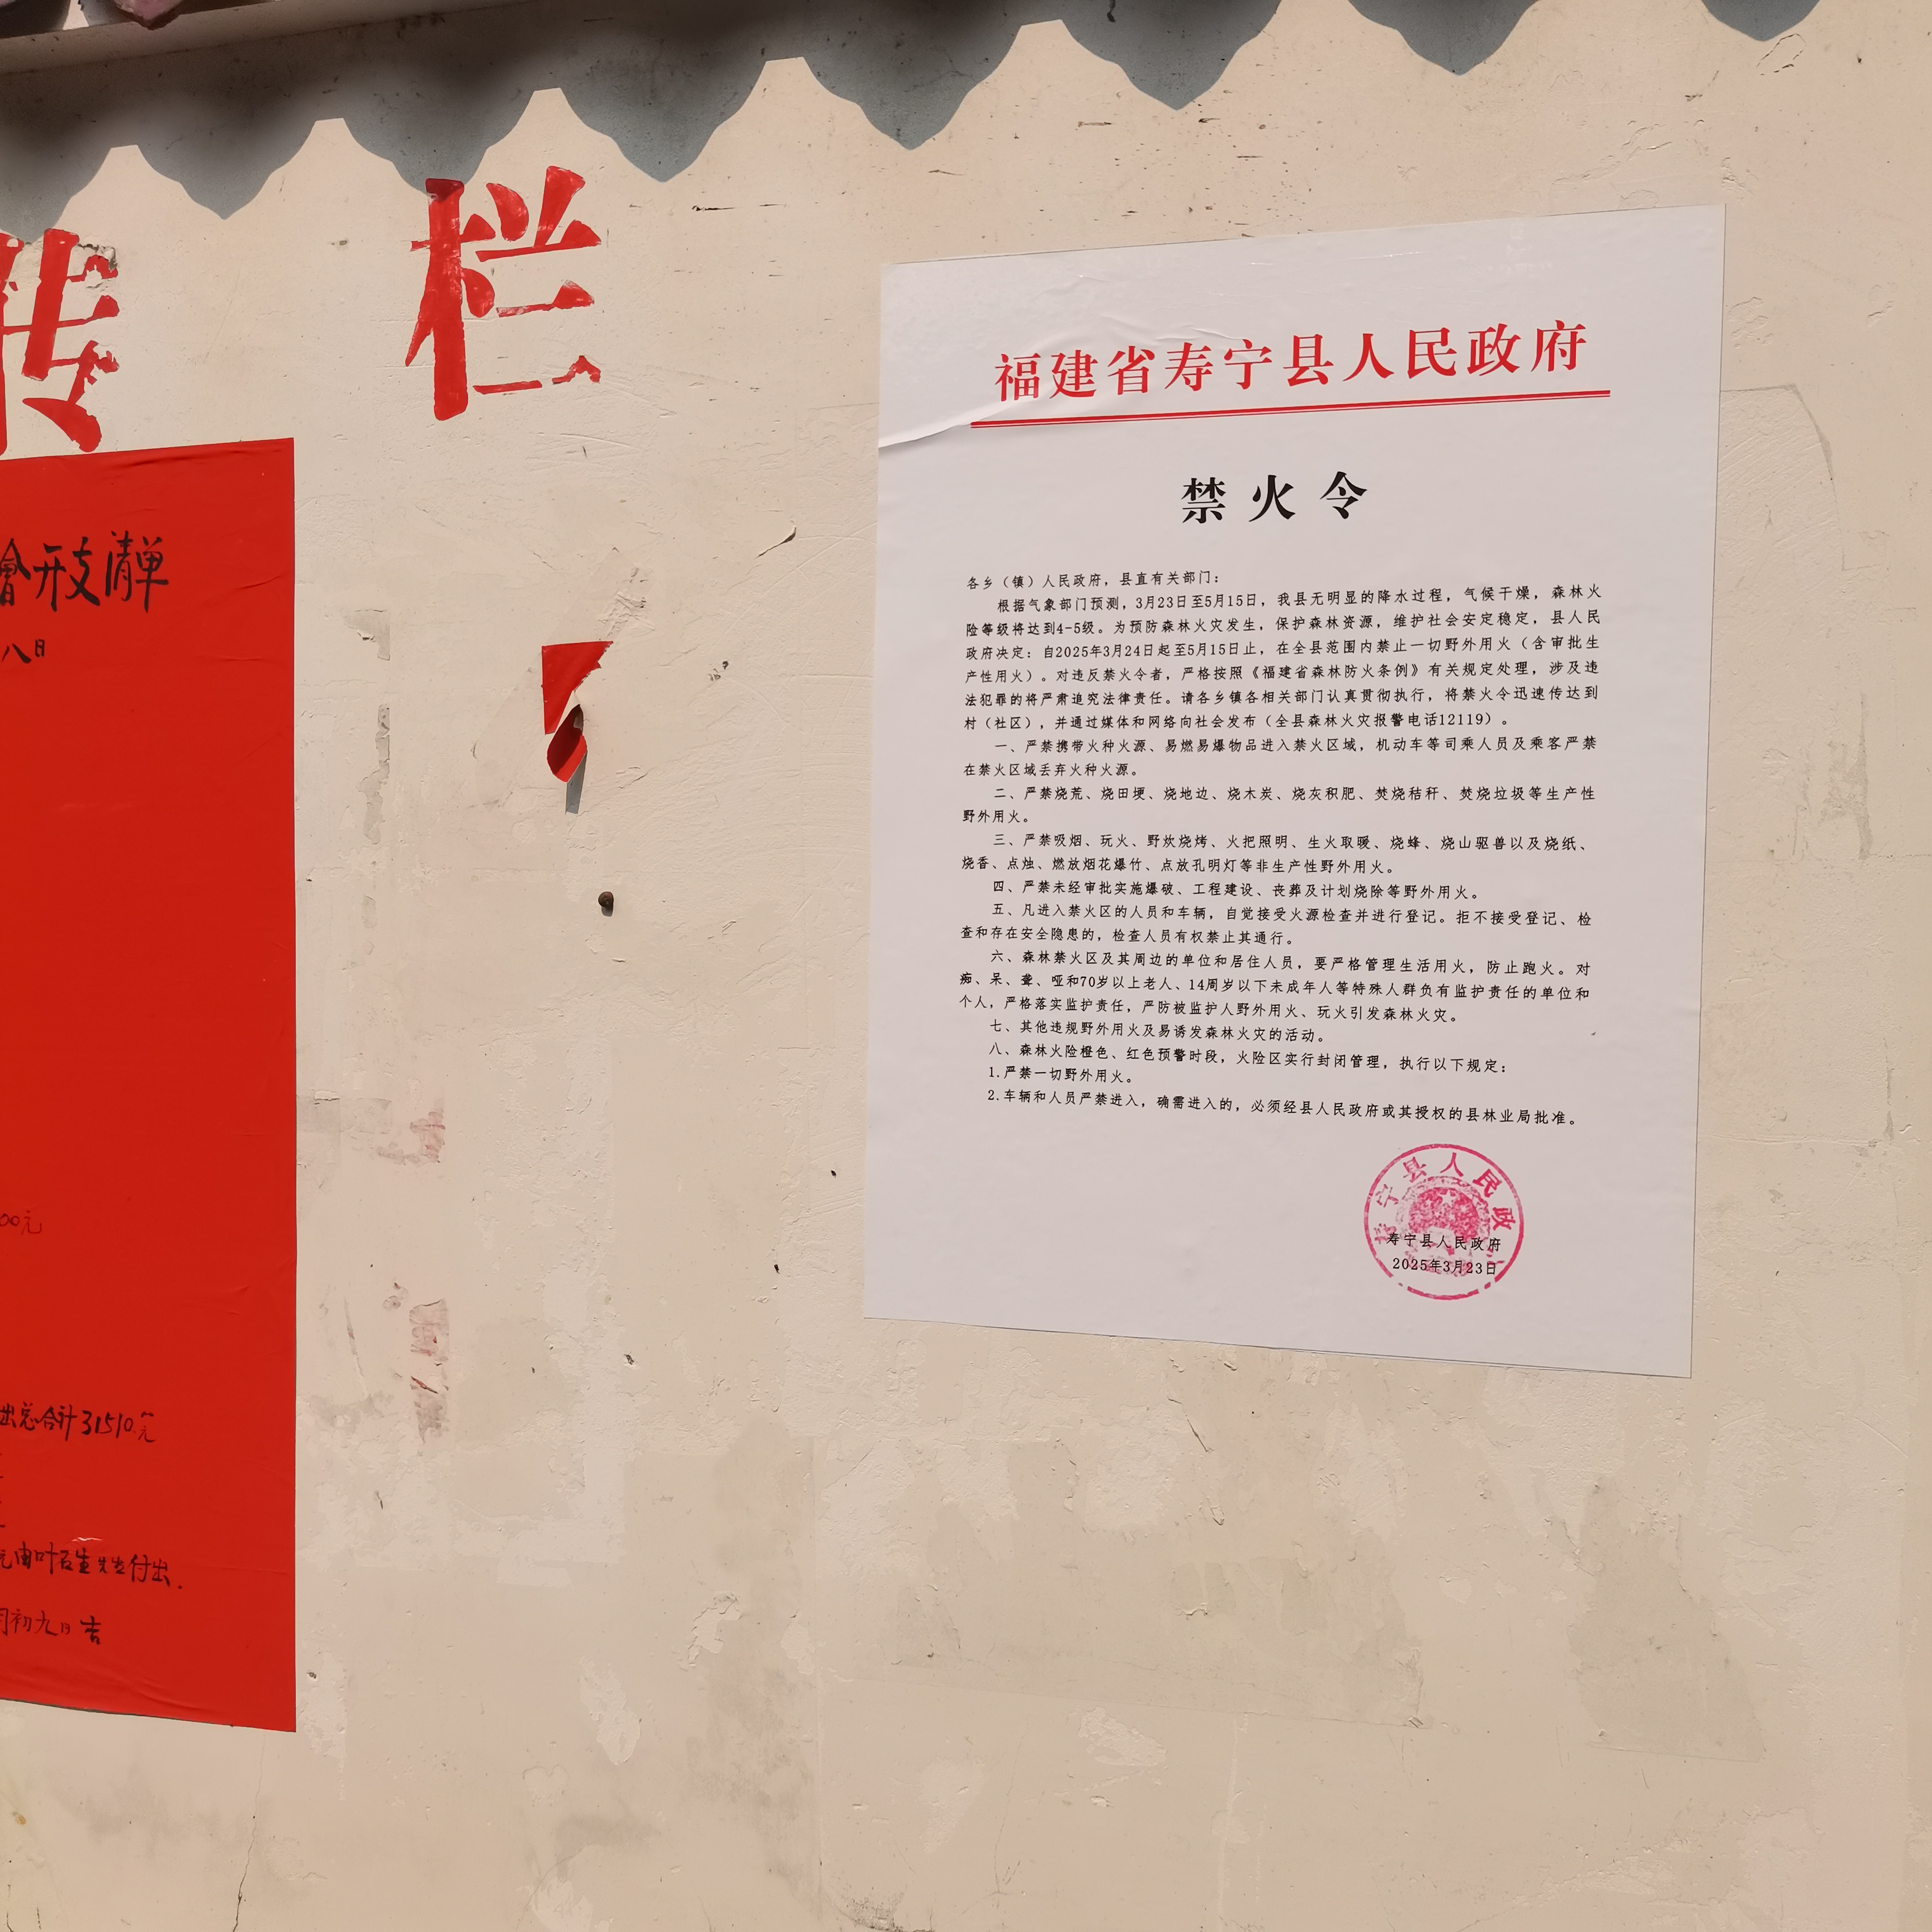 栏
开支清单
八日
00元
出总合计31510元
由叶石生先生付出.
初九日吉
福建省寿宁县人民政府
禁火令
各乡（镇）人民政府，县直有关部门：
根据气象部门预测，3月23日至5月15日，我县无明显的降水过程，气候干燥，森林火
险等级将达到4-5级。为预防森林火灾发生，保护森林资源，维护社会安定稳定，县人民
政府决定：自2025年3月24日起至5月15日止，在全县范围内禁止一切野外用火（含审批生
产性用火）。对违反禁火令者，严格按照《福建省森林防火条例》有关规定处理，涉及违
法犯罪的将严肃追究法律责任。请各乡镇各相关部门认真贯彻执行，将禁火令迅速传达到
村（社区），并通过媒体和网络向社会发布（全县森林火灾报警电话12119）。
一、严禁携带火种火源、易燃易爆物品进入禁火区域，机动车等司乘人员及乘客严禁
在禁火区域丢弃火种火源。
二、严禁烧荒、烧田埂、烧地边、烧木炭、烧灰积肥、焚烧秸秆、焚烧垃圾等生产性
野外用火。
三、严禁吸烟、玩火、野炊烧烤、火把照明、生火取暖、烧蜂、烧山驱兽以及烧纸、
烧香、点烛、燃放烟花爆竹、点放孔明灯等非生产性野外用火。
四、严禁未经审批实施爆破、工程建设、丧葬及计划烧除等野外用火。
五、凡进入禁火区的人员和车辆，自觉接受火源检查并进行登记。拒不接受登记、检
查和存在安全隐患的，检查人员有权禁止其通行。
六、森林禁火区及其周边的单位和居住人员，要严格管理生活用火，防止跑火。对
痴、呆、聋、哑和70岁以上老人、14周岁以下未成年人等特殊人群负有监护责任的单位和
个人，严格落实监护责任，严防被监护人野外用火、玩火引发森林火灾。
七、其他违规野外用火及易诱发森林火灾的活动。
八、森林火险橙色、红色预警时段，火险区实行封闭管理，执行以下规定：
1.严禁一切野外用火。
2.车辆和人员严禁进入，确需进入的，必须经县人民政府或其授权的县林业局批准。
寿宁县人民政
寿宁县人民政府
2025年3月23日